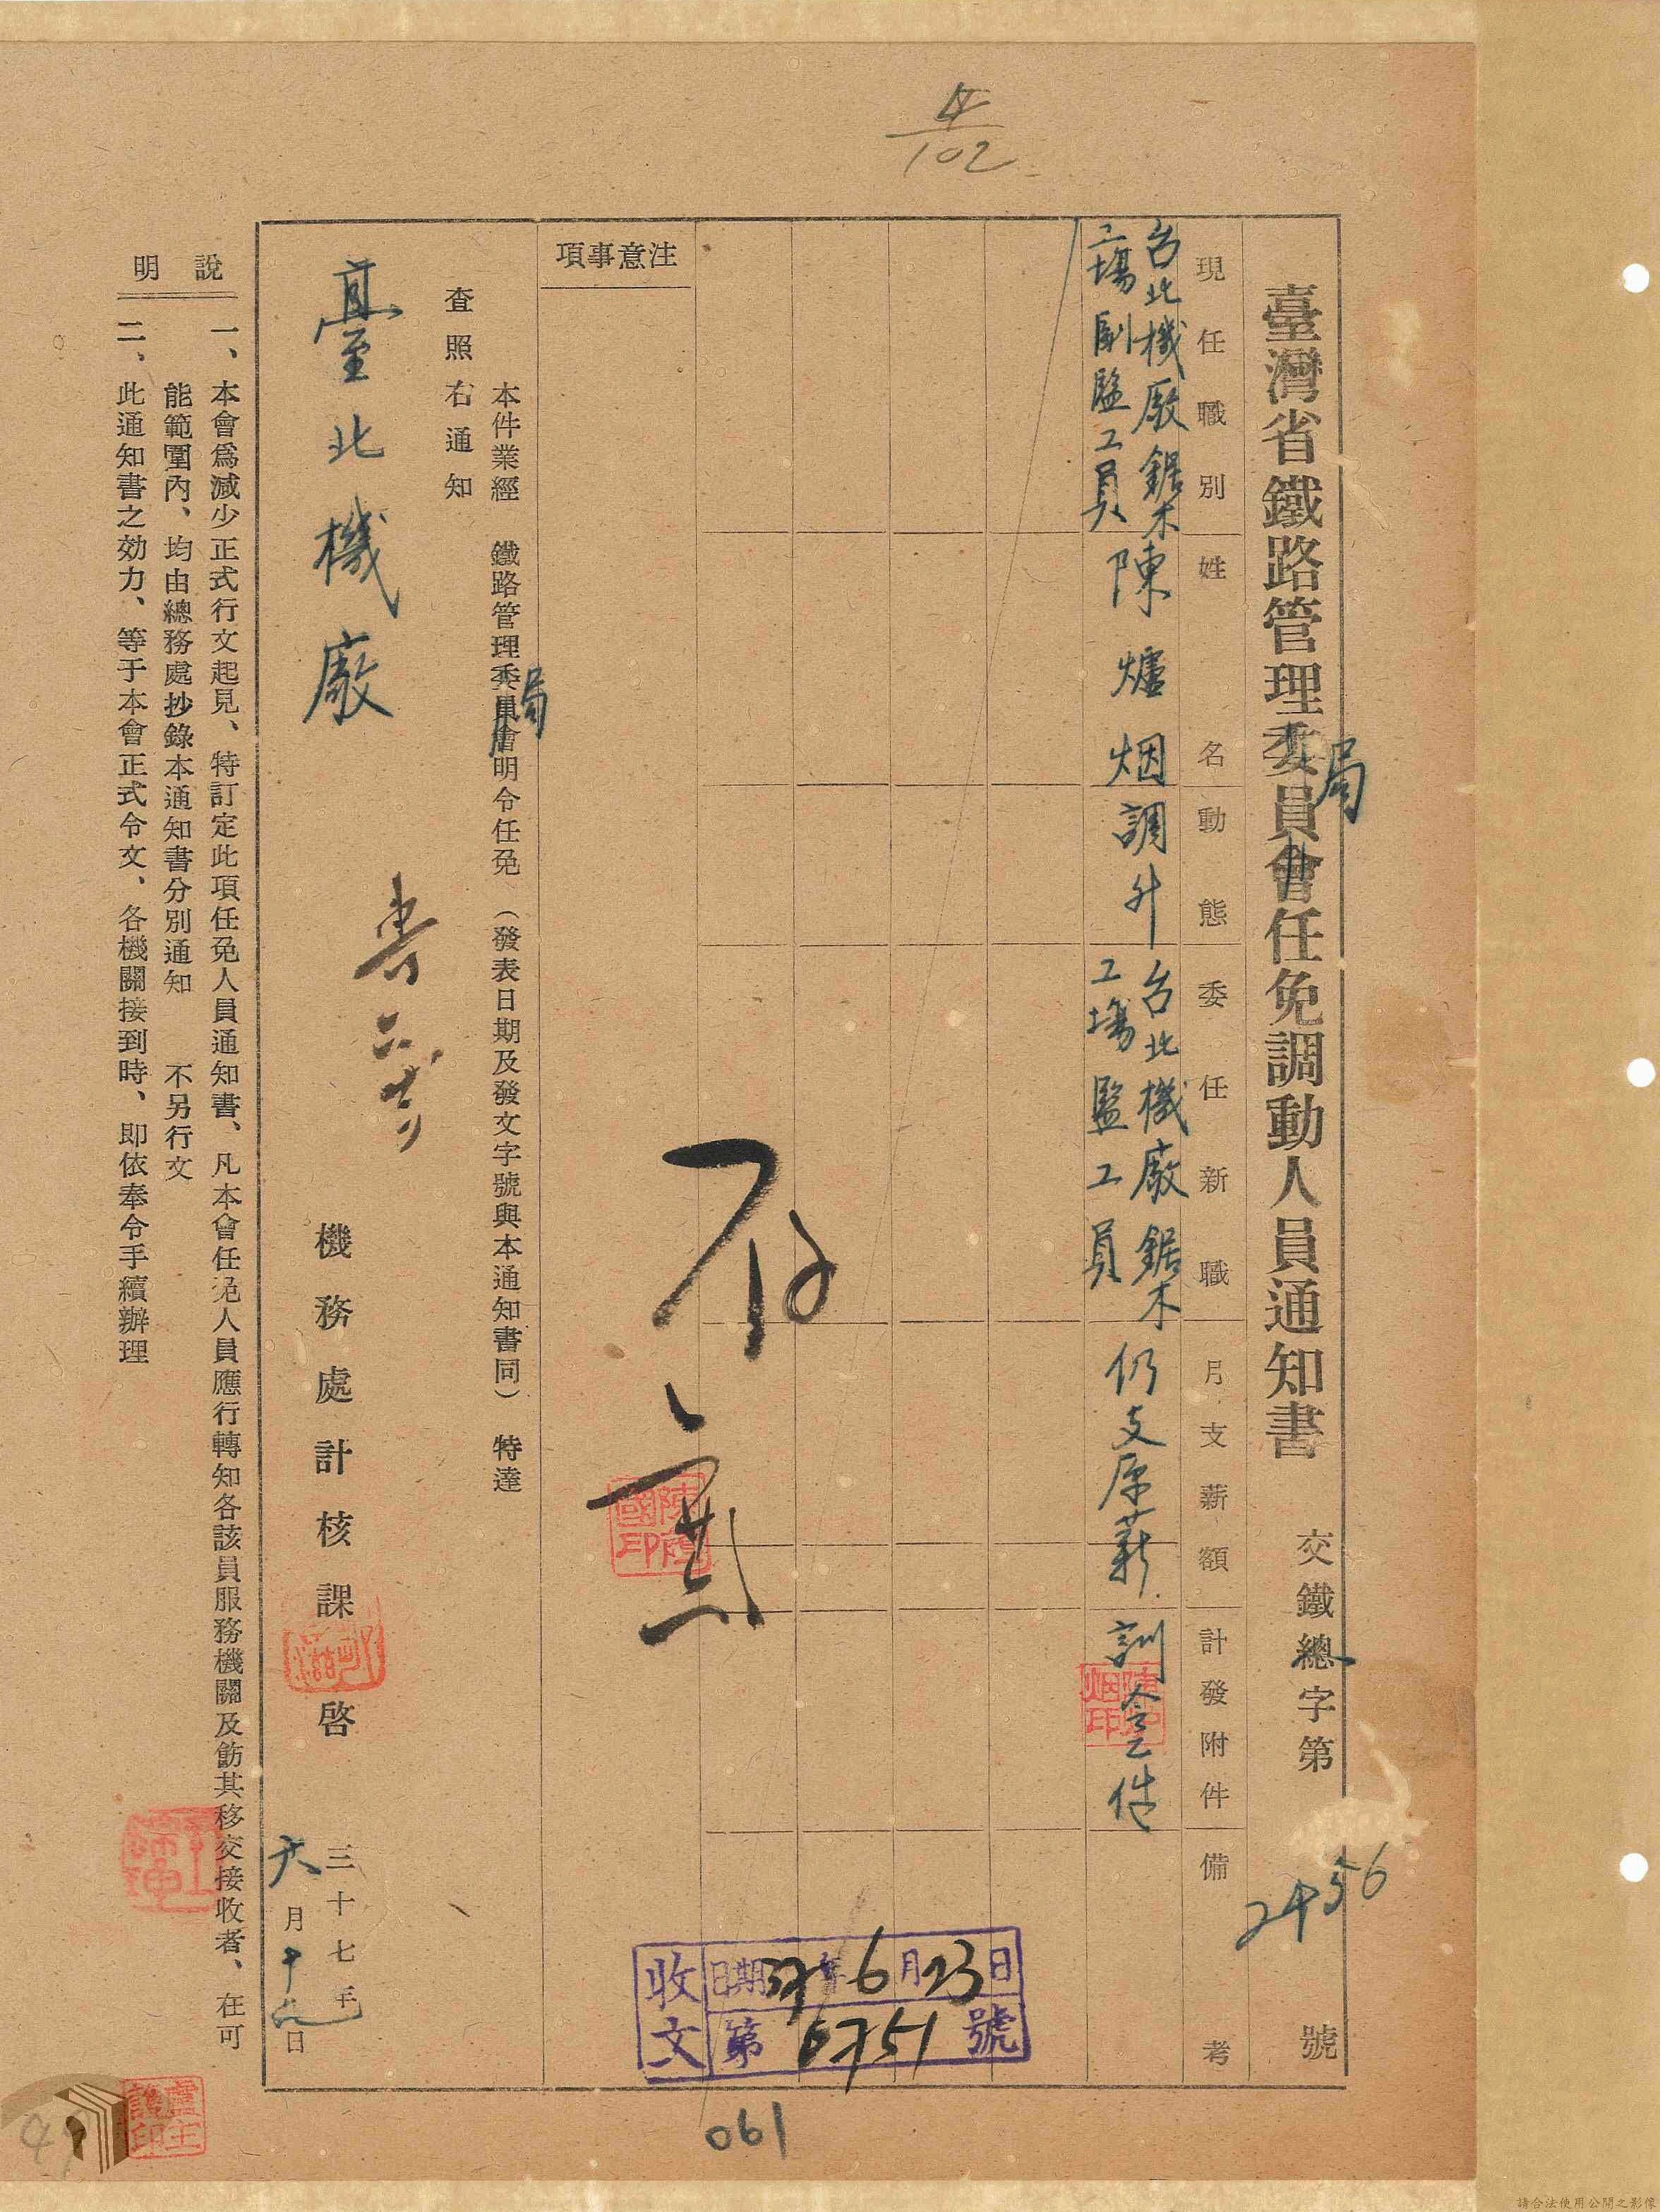 4/102
臺灣省鐵路管理委員會任免調動人員通知書
局
交鐵總字第 2456 號
現任職別 姓名 動態 委任新職 月支薪額 計發附件 備考
台北機廠鋸木
工場副監工員
陳爐烟
調升
台北機廠鋸木
工場監工員
仍支原薪
訓令乙件
注意事項
存
本件業經 鐵路管理委員會明令任免(發表日期及發文字號與本通知書同) 特達
局
查照右通知
臺北機廠
機務處計核課 啓
三十七年
六月十九日
說明
一、本會爲減少正式行文起見、特訂定此項任免人員通知書、凡本會任免人員應行轉知各該員服務機關及飭其移交接收者、在可
能範圍內、均由總務處抄錄本通知書分別通知 不另行文
二、此通知書之効力、等于本會正式令文、各機關接到時、即依奉令手續辦理
收文 日期 37年6月23日
第 6751 號
061
49
請合法使用公開之影像